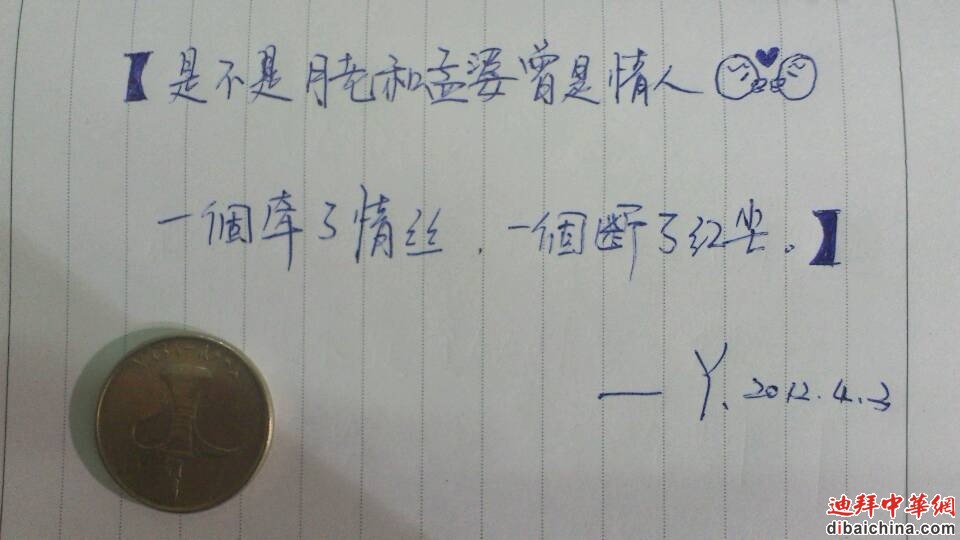 【是不是月老和孟婆曾是情人
一個牵了情丝，一個斷了红尘。】
— Y. 2012.4.3
迪拜中華網
dibaichina.com